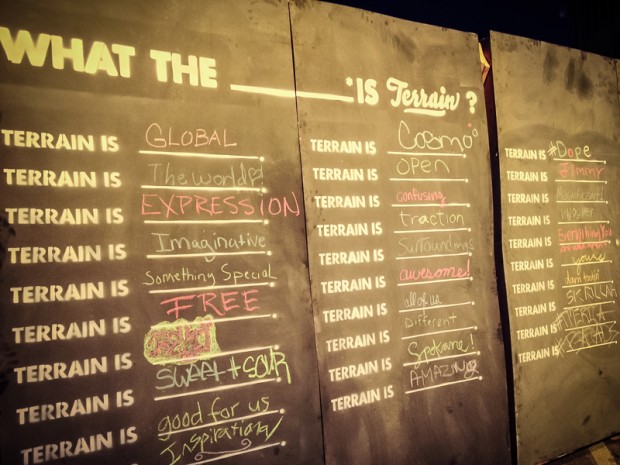 WHAT THE ________ IS Terrain?
TERRAIN IS GLOBAL
TERRAIN IS The world?!
TERRAIN IS EXPRESSION
TERRAIN IS Imaginative
TERRAIN IS Something Special
TERRAIN IS FREE
TERRAIN IS
TERRAIN IS SWEET + SOUR
TERRAIN IS good for us
TERRAIN IS Inspiration
TERRAIN IS Cosmo
TERRAIN IS OPEN
TERRAIN IS confusing
TERRAIN IS traction
TERRAIN IS Surroundings
TERRAIN IS awesome!
TERRAIN IS all of us
TERRAIN IS Different
TERRAIN IS Spokane!
TERRAIN IS AMAZING
TERRAIN IS #Dope
TERRAIN IS Jimmy
TERRAIN IS
TERRAIN IS
TERRAIN IS Everything You
TERRAIN IS yours
TERRAIN IS
TERRAIN IS SKRILLAH
TERRAIN IS
TERRAIN IS